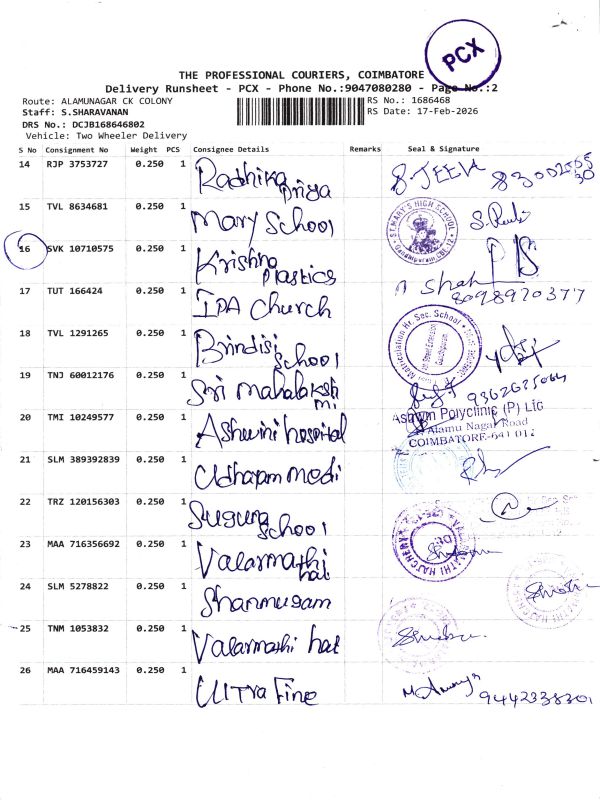 PCX
THE PROFESSIONAL COURIERS, COIMBATORE
Delivery Runsheet - PCX - Phone No.:9047080280 - Page No.:2
Route: ALAMUNAGAR CK COLONY
RS No.: 1686468
Staff: S.SHARAVANAN
RS Date: 17-Feb-2026
DRS No.: DCJB168646802
Vehicle: Two Wheeler Delivery
S No Consignment No Weight PCS Consignee Details Remarks Seal & Signature
14 RJP 3753727 0.250 1 Radhika Priya S.JEEVA
15 TVL 8634681 0.250 1 Mary School ST.MARY'S HIGH SCHOOL
16 SVK 10710575 0.250 1 Krishna Plastics
17 TUT 166424 0.250 1 IPA Church 8098970377
18 TVL 1291265 0.250 1 Brindisi School Matriculation Hr. Sec. School
19 TNJ 60012176 0.250 1 Sri Mahalakshmi
20 TMI 10249577 0.250 1 Ashwini hospital Ashwin Polyclinic (P) Ltd
Alamu Nagar Road
COIMBATORE-641 012
21 SLM 389392839 0.250 1 Udhayam Medi
22 TRZ 120156303 0.250 1 Suguna School
23 MAA 716356692 0.250 1 Valarmathi hat
24 SLM 5278822 0.250 1 Shanmugam
25 TNM 1053832 0.250 1 Valarmathi hat
26 MAA 716459143 0.250 1 Ultra Fine 9442338301